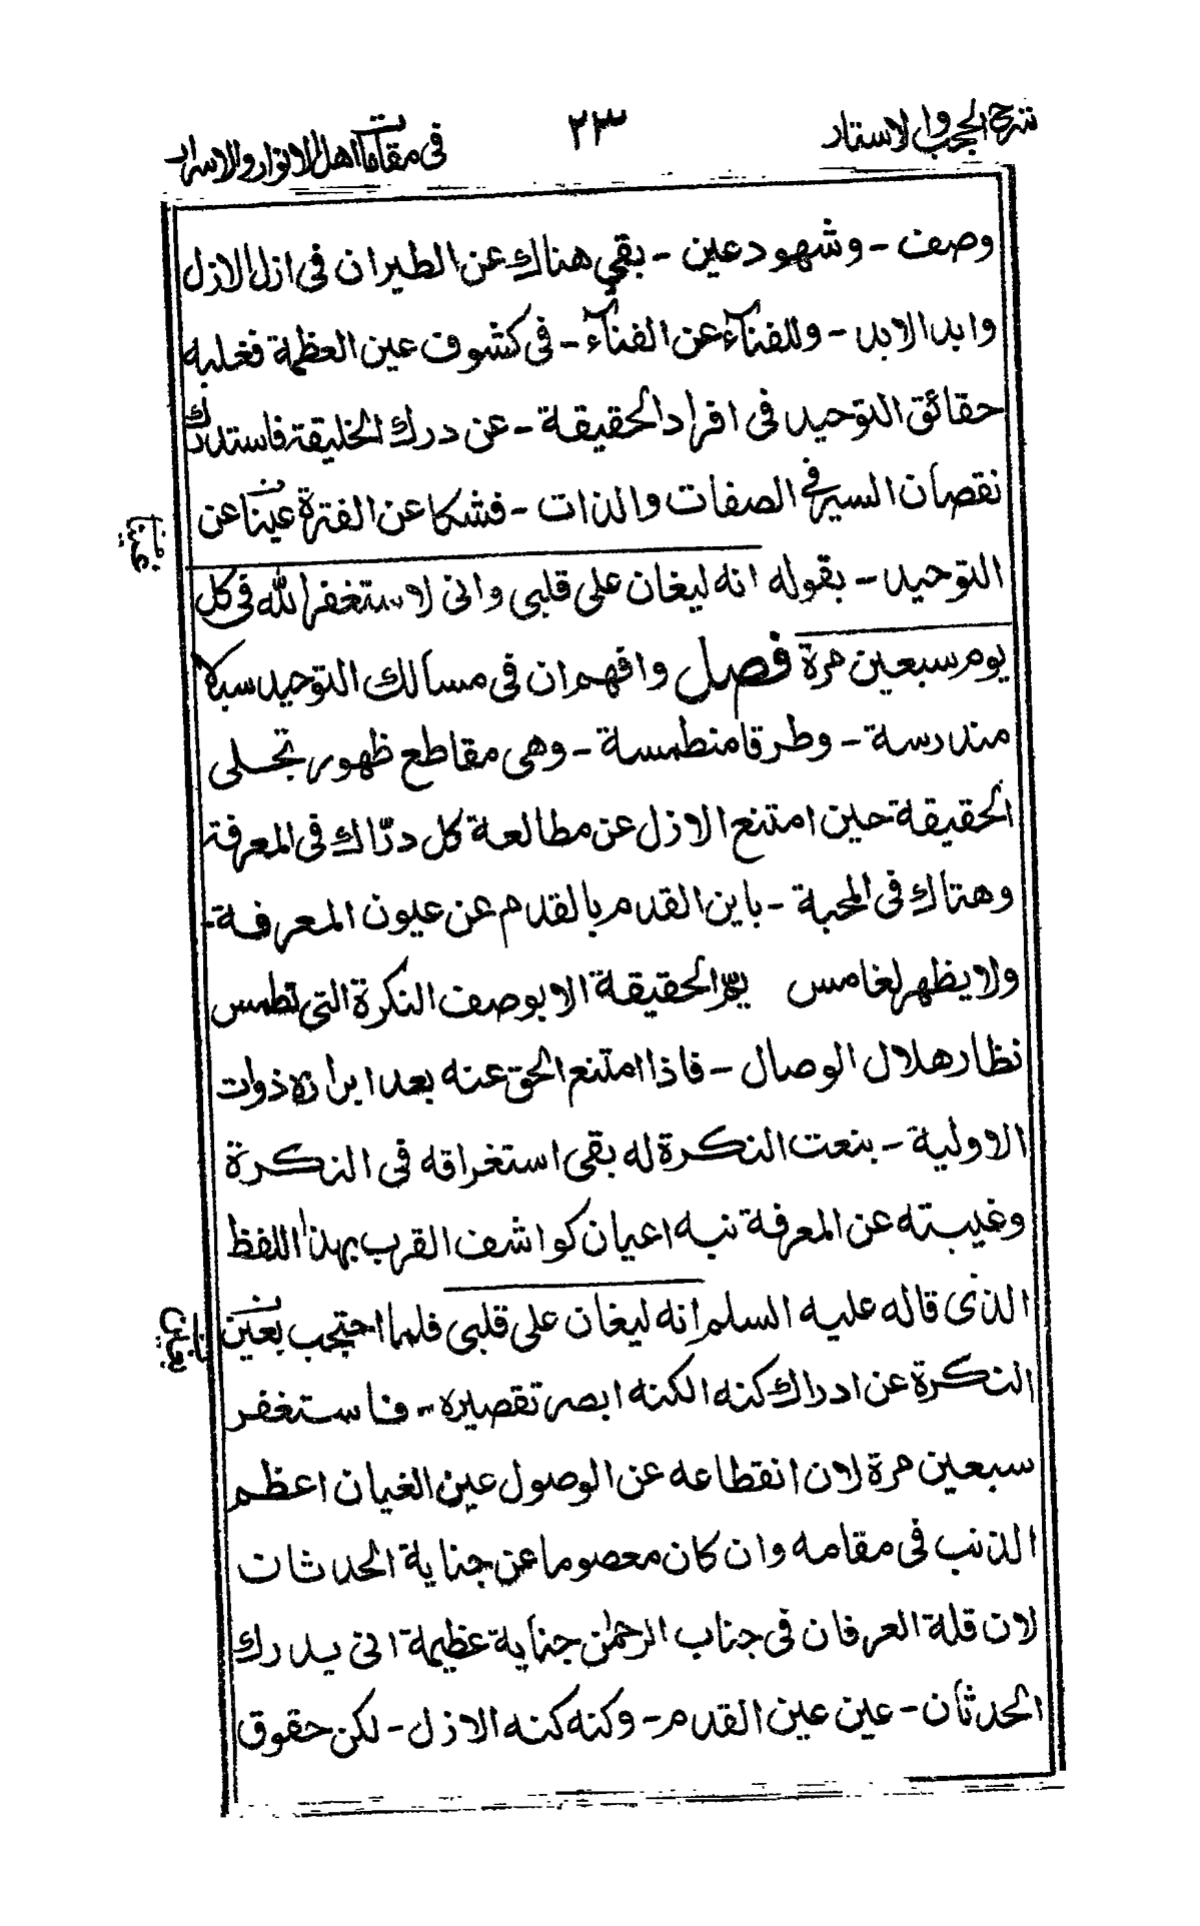 شرح الحجب والاستار
٢٣
فى مقامات اهل الانوار والاسرار
وصف - وشهود عين - بقى هناك عن الطيران فى ازل الازل
وابد الابد - وللفناء عن الفناء - فى كشوف عين العظمة فغلبه
حقائق التوحيد فى افراد الحقيقة - عن درك الخليقة فاستدرك
نقصان السير فى الصفات والذات - فشكا عن الفترة عينا عن
التوحيد - بقوله انه ليغان على قلبى وانى لاستغفر الله فى كل
يوم سبعين مرة فصل وافهم ان فى مسالك التوحيد سبلا
مندرسة - وطرقا منطمسة - وهى مقاطع ظهور تجلى
الحقيقة حين امتنع الازل عن مطالعة كل درّاك فى المعرفة
وهتاك فى المحبة - باين القدم بالقدم عن عيون المعرفة -
ولا يظهر لغامس يمّ الحقيقة الا بوصف النكرة التى تطمس
نظار هلال الوصال - فاذا امتنع الحق عنه بعد ابرازه ذوات
الاولية - بنعت النكرة له بقى استغراقه فى النكرة
وغيبته عن المعرفة نبه اعيان كواشف القرب بهذا اللفظ
الذى قاله عليه السلم انه ليغان على قلبى فلما احتجب بعين
النكرة عن ادراك كنه الكنه ابصر تقصيره - فاستغفر
سبعين مرة لان انقطاعه عن الوصول عين الغيان اعظم
الذنب فى مقامه وان كان معصوما عن جناية الحدثان
لان قلة العرفان فى جناب الرحمٰن جناية عظيمة انى يدرك
الحدثان - عين عين القدم - وكنه كنه الازل - لكن حقوق